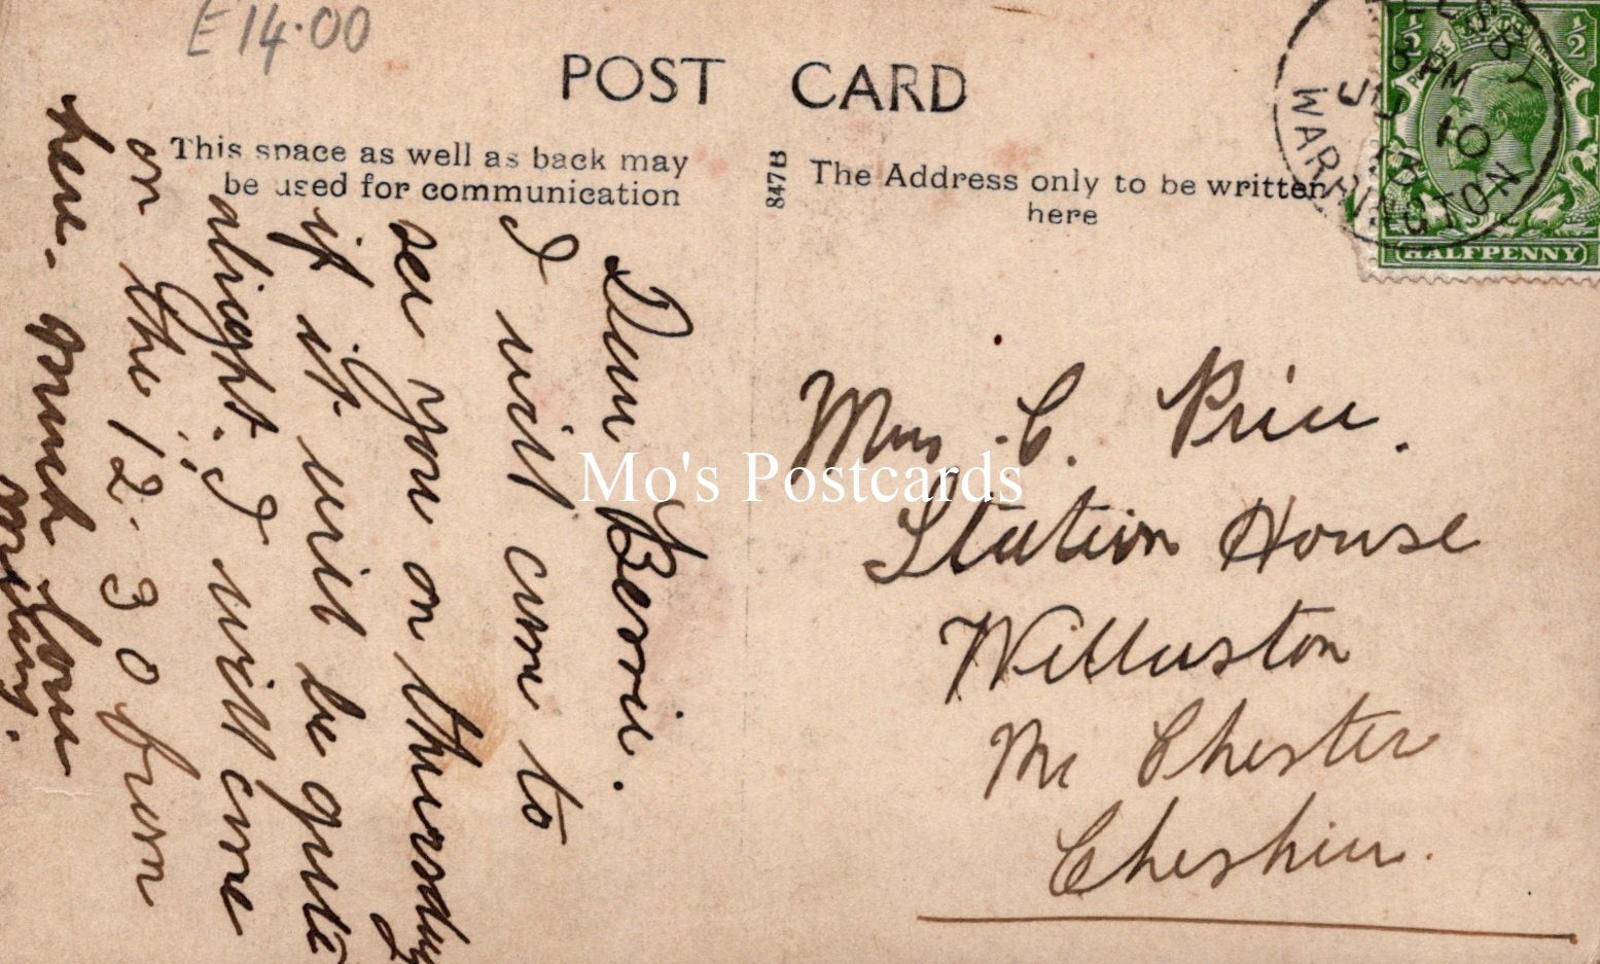 E14.00
POST CARD
This space as well as back may
be used for communication
847B
The Address only to be written
here
½ ½
HALFPENNY
WARRINGTON
8 PM
10
13
Dear Bessie.
I will come to
see you on thursday
if it will be quite
alright. I will come
on the 12.30 from
here. much love
Mrs C. Price.
Station House
Willaston
Nr Chester
Cheshire.
Mo's Postcards